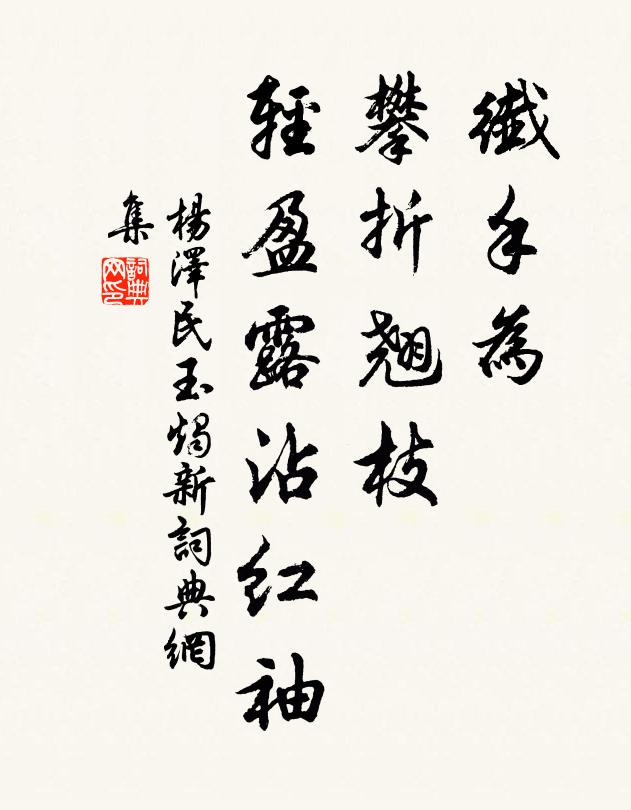 纖手為
攀折翘枝
輕盈露沾紅袖
楊澤民玉燭新詞典網
集
詞典网印